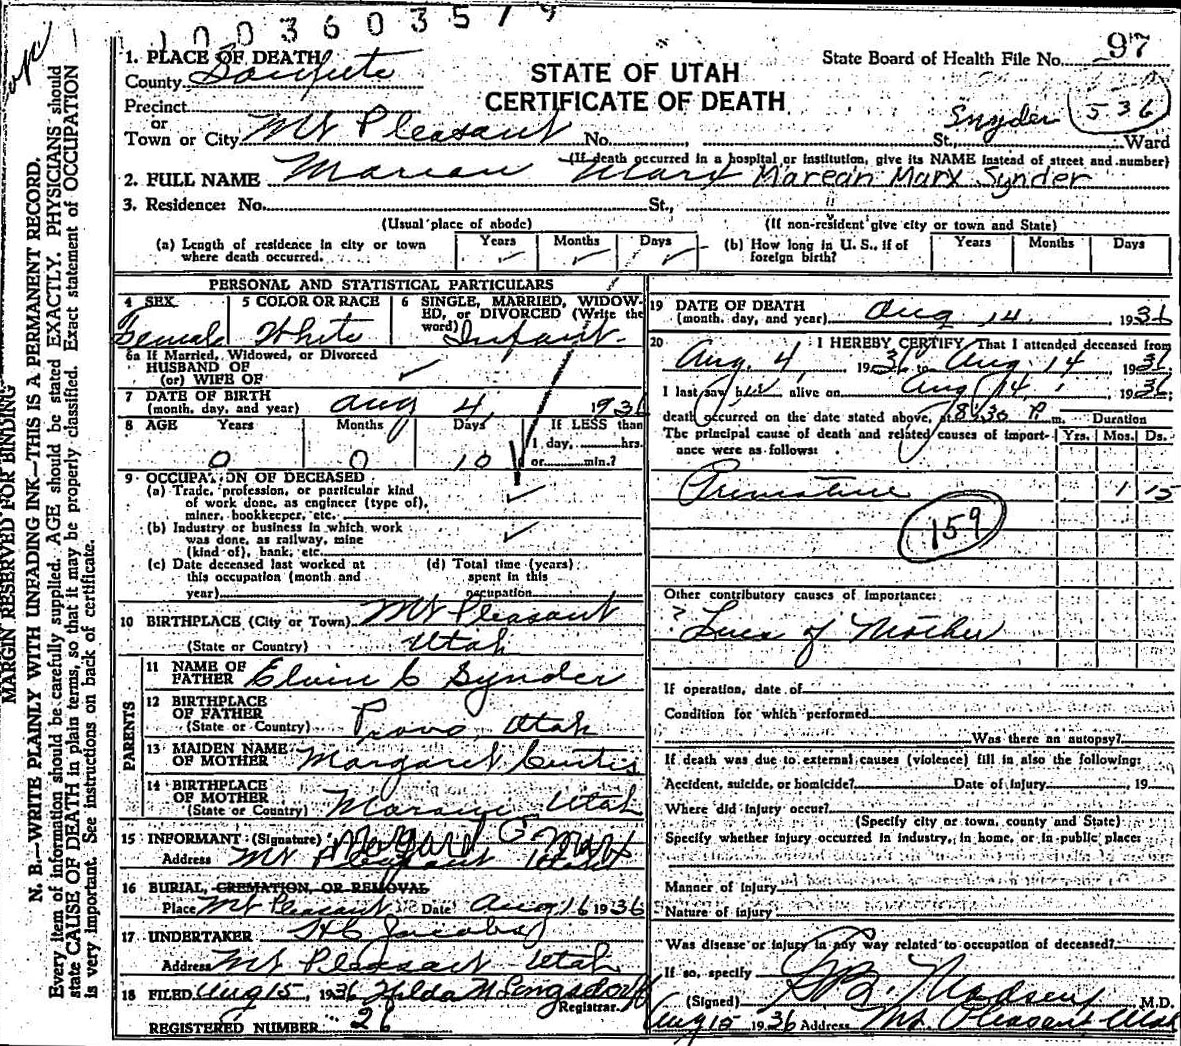 1003603579
1. PLACE OF DEATH
County Sanpete
Precinct
or
Town or City Mt Pleasant No. St., Ward
STATE OF UTAH
CERTIFICATE OF DEATH
State Board of Health File No. 97
Snyder 536
(If death occurred in a hospital or institution, give its NAME instead of street and number)
2. FULL NAME Marean Marx Marean Marx Synder
3. Residence: No. St.,
(Usual place of abode) (If non-resident give city or town and State)
(a) Length of residence in city or town where death occurred. Years Months Days
(b) How long in U. S., if of foreign birth? Years Months Days
PERSONAL AND STATISTICAL PARTICULARS
4 SEX Female
5 COLOR OR RACE White
6 SINGLE, MARRIED, WIDOWED, or DIVORCED (Write the word) Infant
6a If Married, Widowed, or Divorced
HUSBAND OF
(or) WIFE OF
7 DATE OF BIRTH
(month, day, and year) Aug 4, 1936
8 AGE Years Months Days If LESS than
1 day, hrs.
or min.?
0 0 10
9 OCCUPATION OF DECEASED
(a) Trade, profession, or particular kind
of work done, as engineer (type of),
miner, bookkeeper, etc.
(b) Industry or business in which work
was done, as railway, mine
(kind of), bank, etc.
(c) Date deceased last worked at
this occupation (month and
year)
(d) Total time (years)
spent in this
occupation
10 BIRTHPLACE (City or Town) Mt Pleasant
(State or Country) Utah
PARENTS
11 NAME OF FATHER Elvin C Synder
12 BIRTHPLACE OF FATHER
(State or Country) Provo, Utah
13 MAIDEN NAME OF MOTHER Margaret Curtis
14 BIRTHPLACE OF MOTHER
(State or Country) Utah
15 INFORMANT (Signature) C. Marx
Address Mt Pleasant Utah
16 BURIAL, CREMATION, OR REMOVAL
Place Mt Pleasant Date Aug 16 1936
17 UNDERTAKER Jacobs
Address Mt Pleasant Utah
18 FILED Aug 15, 1936 Hilda M Lengsdorff
Registrar.
REGISTERED NUMBER 26
19 DATE OF DEATH
(month, day, and year) Aug 14, 1936
20 I HEREBY CERTIFY, That I attended deceased from
Aug. 4, 1936 to Aug. 14, 1936
I last saw her alive on Aug 14, 1936;
death occurred on the date stated above, at 8:30 P. m. Duration
The principal cause of death and related causes of importance were as follows: Yrs. Mos. Ds.
Premature 1 15
159
Other contributory causes of importance:
? Lues of Mother
If operation, date of
Condition for which performed
Was there an autopsy?
If death was due to external causes (violence) fill in also the following:
Accident, suicide, or homicide? Date of injury , 19
Where did injury occur?
(Specify city or town, county and State)
Specify whether injury occurred in industry, in home, or in public place:
Manner of injury
Nature of injury
Was disease or injury in any way related to occupation of deceased?
If so, specify
(Signed) Madsen M.D.
Aug 15 1936 Address Mt. Pleasant, Utah
MARGIN RESERVED FOR BINDING
N. B.—WRITE PLAINLY WITH UNFADING INK—THIS IS A PERMANENT RECORD.
Every item of information should be carefully supplied. AGE should be stated EXACTLY. PHYSICIANS should
state CAUSE OF DEATH in plain terms, so that it may be properly classified. Exact statement of OCCUPATION
is very important. See instructions on back of certificate.